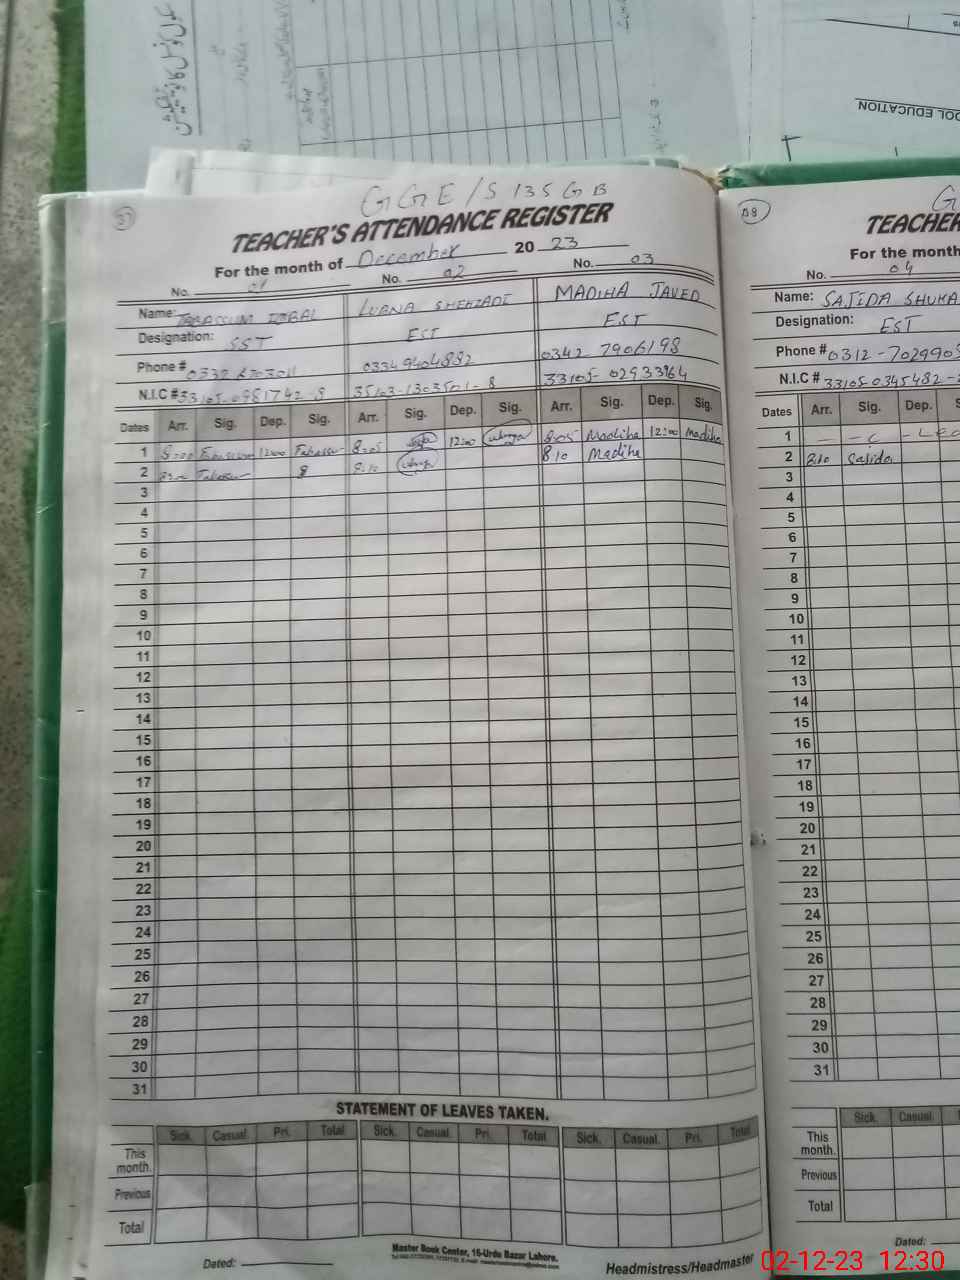 OOL EDUCATION
37
GGE/S 135 GB
TEACHER'S ATTENDANCE REGISTER
For the month of December 2023
No. 01 No. 02 No. 03
Name: TABASSUM IQBAL LUBNA SHEHZADI MADIHA JAVED
Designation: SST EST EST
Phone # 0334 9404882 0342-7906198
N.I.C # 33105-0981742-8 35103-1303501-8 33105-02933964
Dates Arr. Sig. Dep. Sig. Arr. Sig. Dep. Sig. Arr. Sig. Dep. Sig.
1 8:00 Tabassum 12:00 Tabassum 8:05 12:00 8:05 Madiha 12:00 Madiha
2 8:00 Tabassum 8:10 8:10 Madiha
3
4
5
6
7
8
9
10
11
12
13
14
15
16
17
18
19
20
21
22
23
24
25
26
27
28
29
30
31
STATEMENT OF LEAVES TAKEN.
Sick. Casual. Pri. Total Sick. Casual. Pri. Total Sick. Casual. Pri. Total
This month.
Previous
Total
Dated:
Master Book Center, 16-Urdu Bazar Lahore.
Headmistress/Headmaster
38
G
TEACHER
For the month
No. 04
Name: SAJIDA SHUKA
Designation: EST
Phone # 0312-7029905
N.I.C # 33105-0345482-
Dates Arr. Sig. Dep. S
1 - - C - Lea
2 8:10 Sajida
3
4
5
6
7
8
9
10
11
12
13
14
15
16
17
18
19
20
21
22
23
24
25
26
27
28
29
30
31
Sick. Casual.
This month.
Previous
Total
Dated:
02-12-23 12:30